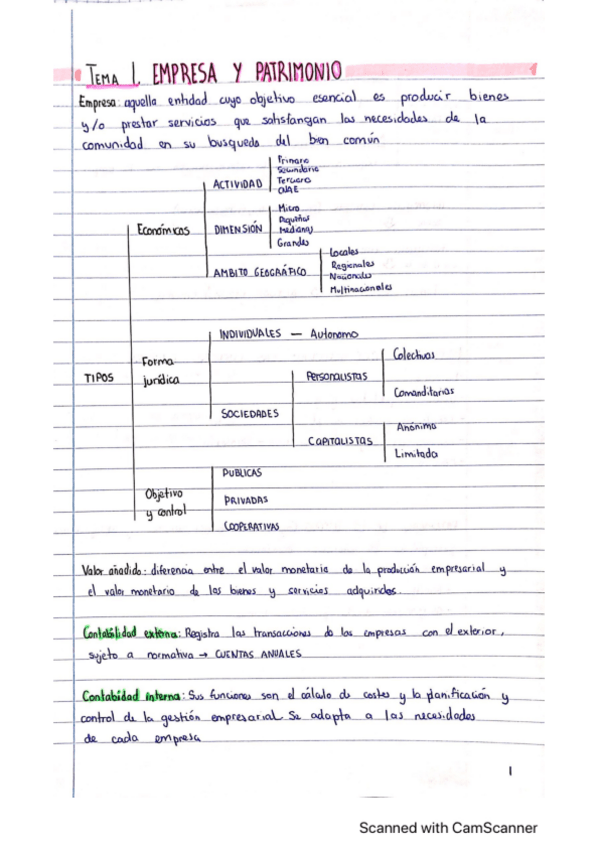 TEMA 1. EMPRESA Y PATRIMONIO
Empresa: aquella entidad cuyo objetivo esencial es producir bienes
y/o prestar servicios que satisfangan las necesidades de la
comunidad en su busqueda del bien común
Primario
Secundario
Terciario
ACTIVIDAD
CNAE
Micro
Pequeñas
Económicas
DIMENSIÓN
Medianas
Grandes
Locales
Regionales
AMBITO GEOGRÁFICO
Nacionales
Multinacionales
INDIVIDUALES — Autonomo
Colectivas
Forma
TIPOS
jurídica
Personalistas
Comanditarias
SOCIEDADES
Anónima
CAPITALISTAS
Limitada
PUBLICAS
Objetivo
PRIVADAS
y control
COOPERATIVAS
Valor añadido: diferencia entre el valor monetario de la producción empresarial y
el valor monetario de los bienes y servicios adquiridos.
Contabilidad externa: Registra las transacciones de las empresas con el exterior,
sujeto a normativa → CUENTAS ANUALES
Contabidad interna: Sus funciones son el cálculo de costes y la planificación y
control de la gestión empresarial. Se adapta a las necesidades
de cada empresa
1
Scanned with CamScanner